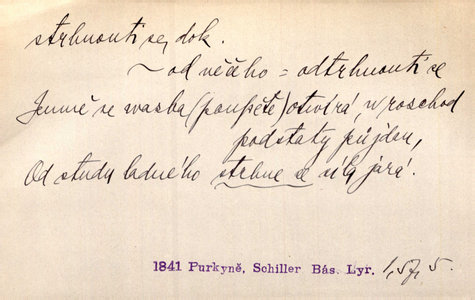 strhnouti se, dok.
~ od něčeho = odtrhnouti se
Jemně se vazba (poupěte) otvírá, w rozchod
podstaty půjdou,
Od studu ladného strhne se síla jará.
1841 Purkyně, Schiller Bás. Lyr. 1, 57, 5.